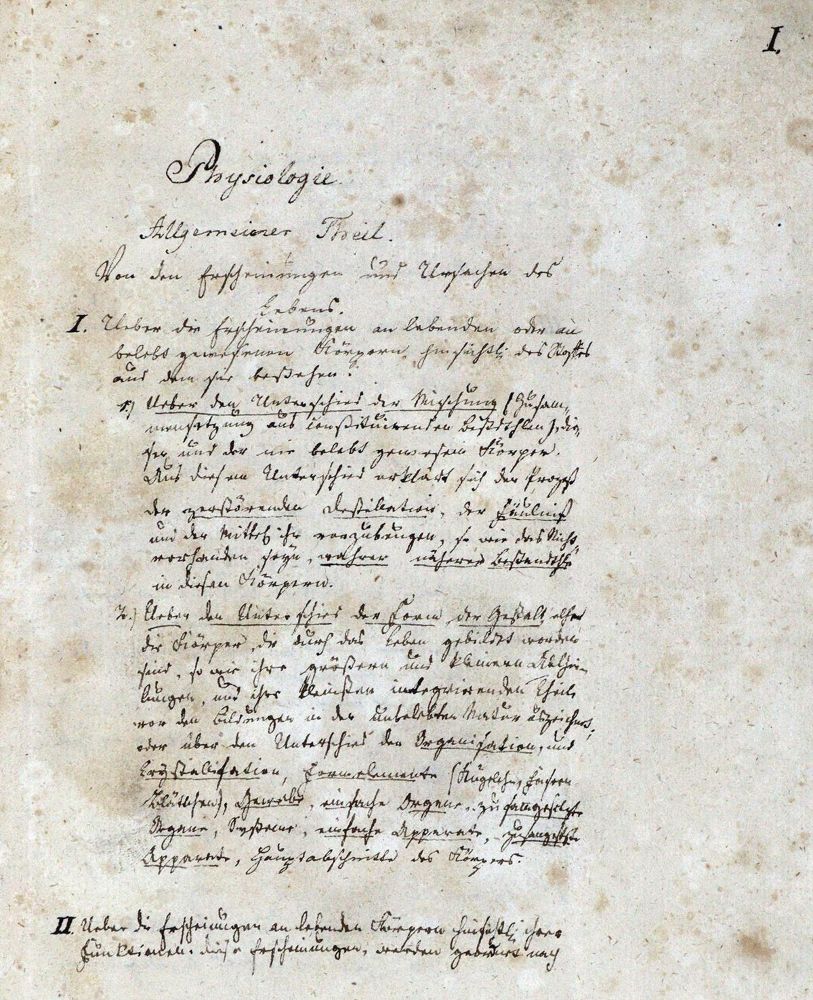 I.
Physiologie
Allgemeiner Theil.
Von den Erscheinungen und Ursachen des
Lebens.
I. Ueber die Erscheinungen an lebenden oder an
belebt gewesenen Körpern, hinsichtl. des Stoffes
aus dem sie bestehen.
1.) Ueber den Unterschied der Mischung (Zusam-
mensetzung aus constituirenden Bestdthlen) die-
ser und der nie belebt gewesenen Körper.
Aus diesem Unterschied erklärt sich der Prozeß
der zerstörenden Destillation, der Fäulniß
und der Mittel ihr vorzubeugen, so wie das Nicht
vorhanden seyn, wahrer näherer Bestandthle
in diesen Körpern.
2.) Ueber den Unterschied der Form, der Gestalt, 
die Körper, die durch das Leben gebildet worden
sind, so wie ihre größern und kleinern Abthei-
lungen, und ihre kleinsten integrirenden Theile
vor den Bildungen in der unbelebten Natur auszeichnet,
oder über den Unterschied der Organisation, und
Crystallisation, Formelemente (Kügelchen, Fasern
Blättchen), Gewebe, einfache Organe, zusammengesetzte
Organe, Systeme, einfache Apparate, zusamengesetzte
Apparate, Hauptabschnitte des Körpers.
II. Ueber die Erscheinungen an lebenden Körpern hinsichtl. ihrer
Funktionen. Diese Erscheinungen, werden geordnet nach